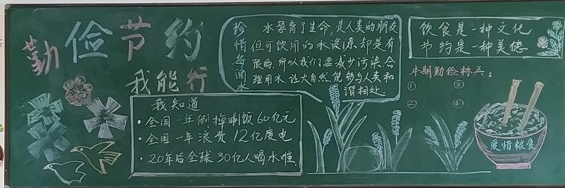 勤俭节约
我能行
我知道
·全国一年倒掉剩饭60亿元
·全国一年浪费12亿度电
·20年后全球30亿人喝水难
珍惜每滴水
水孕育了生命,是人类的朋友
但可饮用的水资源却是有
限的,所以我们要减少污染,合
理用水,让大自然能够与人类和
谐相处
饮食是一种文化
节约是一种美德
本期勤俭标兵:
①
②
③
④
爱惜粮食